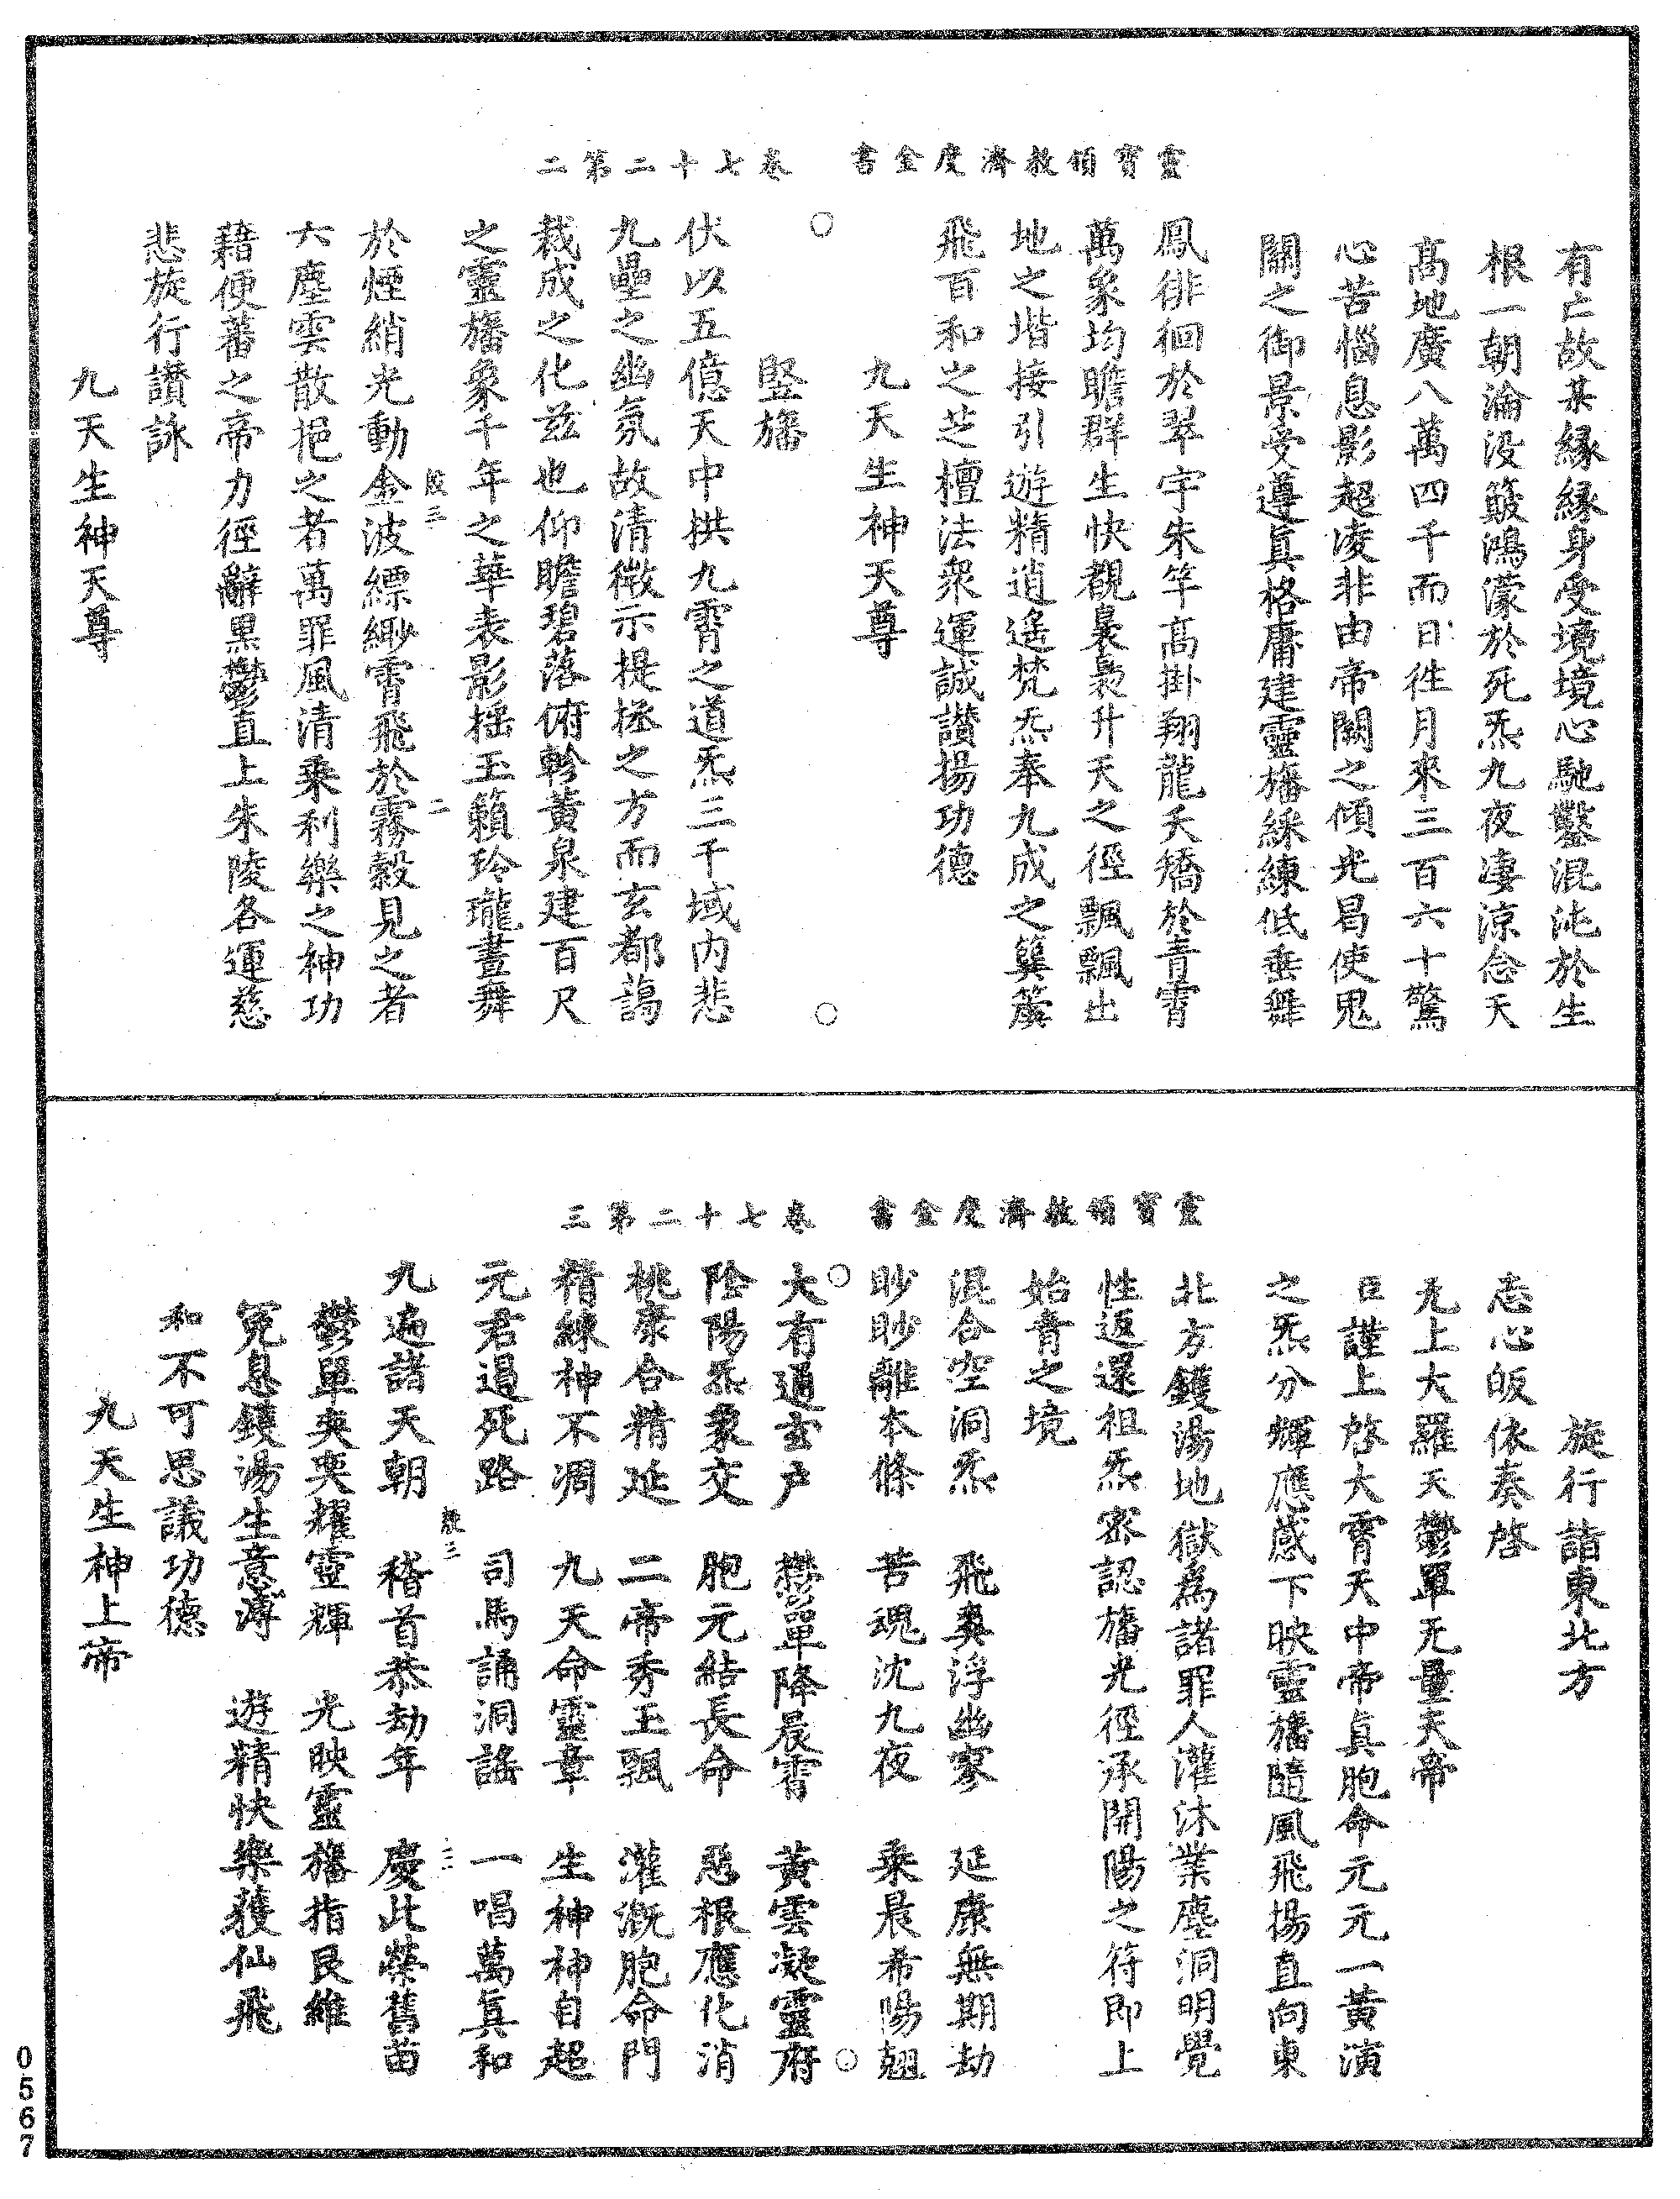 靈寶領教濟度金書　卷二十七第二
有亡故某緣緣身受境境心馳鑿混沌於生
根一朝淪沒簸鴻濛於死炁九夜淒涼念天
高地廣八萬四千而日徃月來三百六十驚
心苦惱息影超凌非由帝闕之傾光曷使鬼
關之御景受遵真格庸建靈旛綵練低垂舞
鳳徘徊於翠宇朱竿高掛翔龍夭矯於青霄
萬象均瞻群生快覩裊裊升天之徑飄飄出
地之堦接引遊精逍遙梵炁奉九成之簨簴
飛百和之芝檀法眾運誠讚揚功德
九天生神天尊
竪旛
伏以五億天中拱九霄之道炁三千域內悲
九壘之幽氛故清微示提拯之方而玄都藹
裁成之化茲也仰瞻碧落俯軫黃泉建百尺
之靈旛象千年之華表影搖玉籟玲瓏晝舞
於煙綃光動金波縹緲霄飛於霧縠見之者
六塵雲散挹之者萬罪風清乘利樂之神功
藉便蕃之帝力徑辭黑鬱直上朱陵各運慈
悲旋行讚詠
九天生神天尊
二
靈寶領教濟度金書　卷二十七第三
旋行詣東北方
志心皈依奏啓
无上大羅天鬱單无量天帝
臣謹上啓大霄天中帝真胞命元元一黃演
之炁分輝應感下映靈旛隨風飛揚直向東
北方鑊湯地獄為諸罪人灌沐業塵洞明覺
性返還祖炁密認旛光徑承開陽之符即上
始青之境
混合空洞炁　飛爽浮幽寥　延康無期劫
眇眇離本條　苦魂沈九夜　乘晨希陽翹
大有通玄戶　鬱單降晨霄　黃雲凝靈府
陰陽炁象交　胞元結長命　惡根應化消
桃康合精延　二帝秀玉飄　灌溉胞命門
精練神不凋　九天命靈章　生神神自超
元君遏死路　司馬誦洞謠　一唱萬真和
九遍諸天朝　稽首恭劫年　慶此榮舊苗
鬱單奭奭耀靈輝　光映靈旛指艮維
冤息鑊湯生意溥　遊精快樂獲仙飛
和不可思議功德
九天生神上帝
三
0567